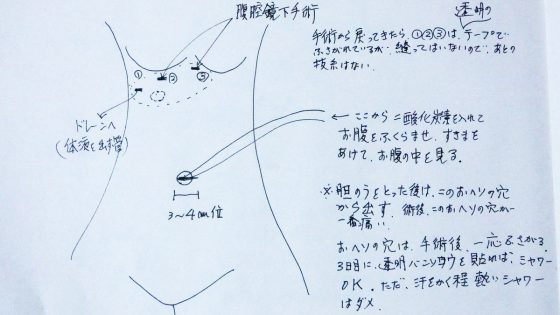 腹腔鏡下手術
透明の
手術から戻ってきたら、①②③は、テープで
ふさがれているが、縫ってはいないので、あとの
抜糸はない。
① ② ③
ドレーンへ
(体液を出す管)
← ここから二酸化炭素を入れて
お腹をふくらませ、すきまを
あけて、お腹の中を見る。
3~4cm位
※胆のうをとった後は、このおヘソの穴
から出す。術後、このおヘソの穴が
一番痛い。
おヘソの穴は、手術後、一応ふさがる。
3日目に、透明バンソウコウを貼れば、シャワー
OK。ただ、汗をかく程 熱いシャワー
はダメ。